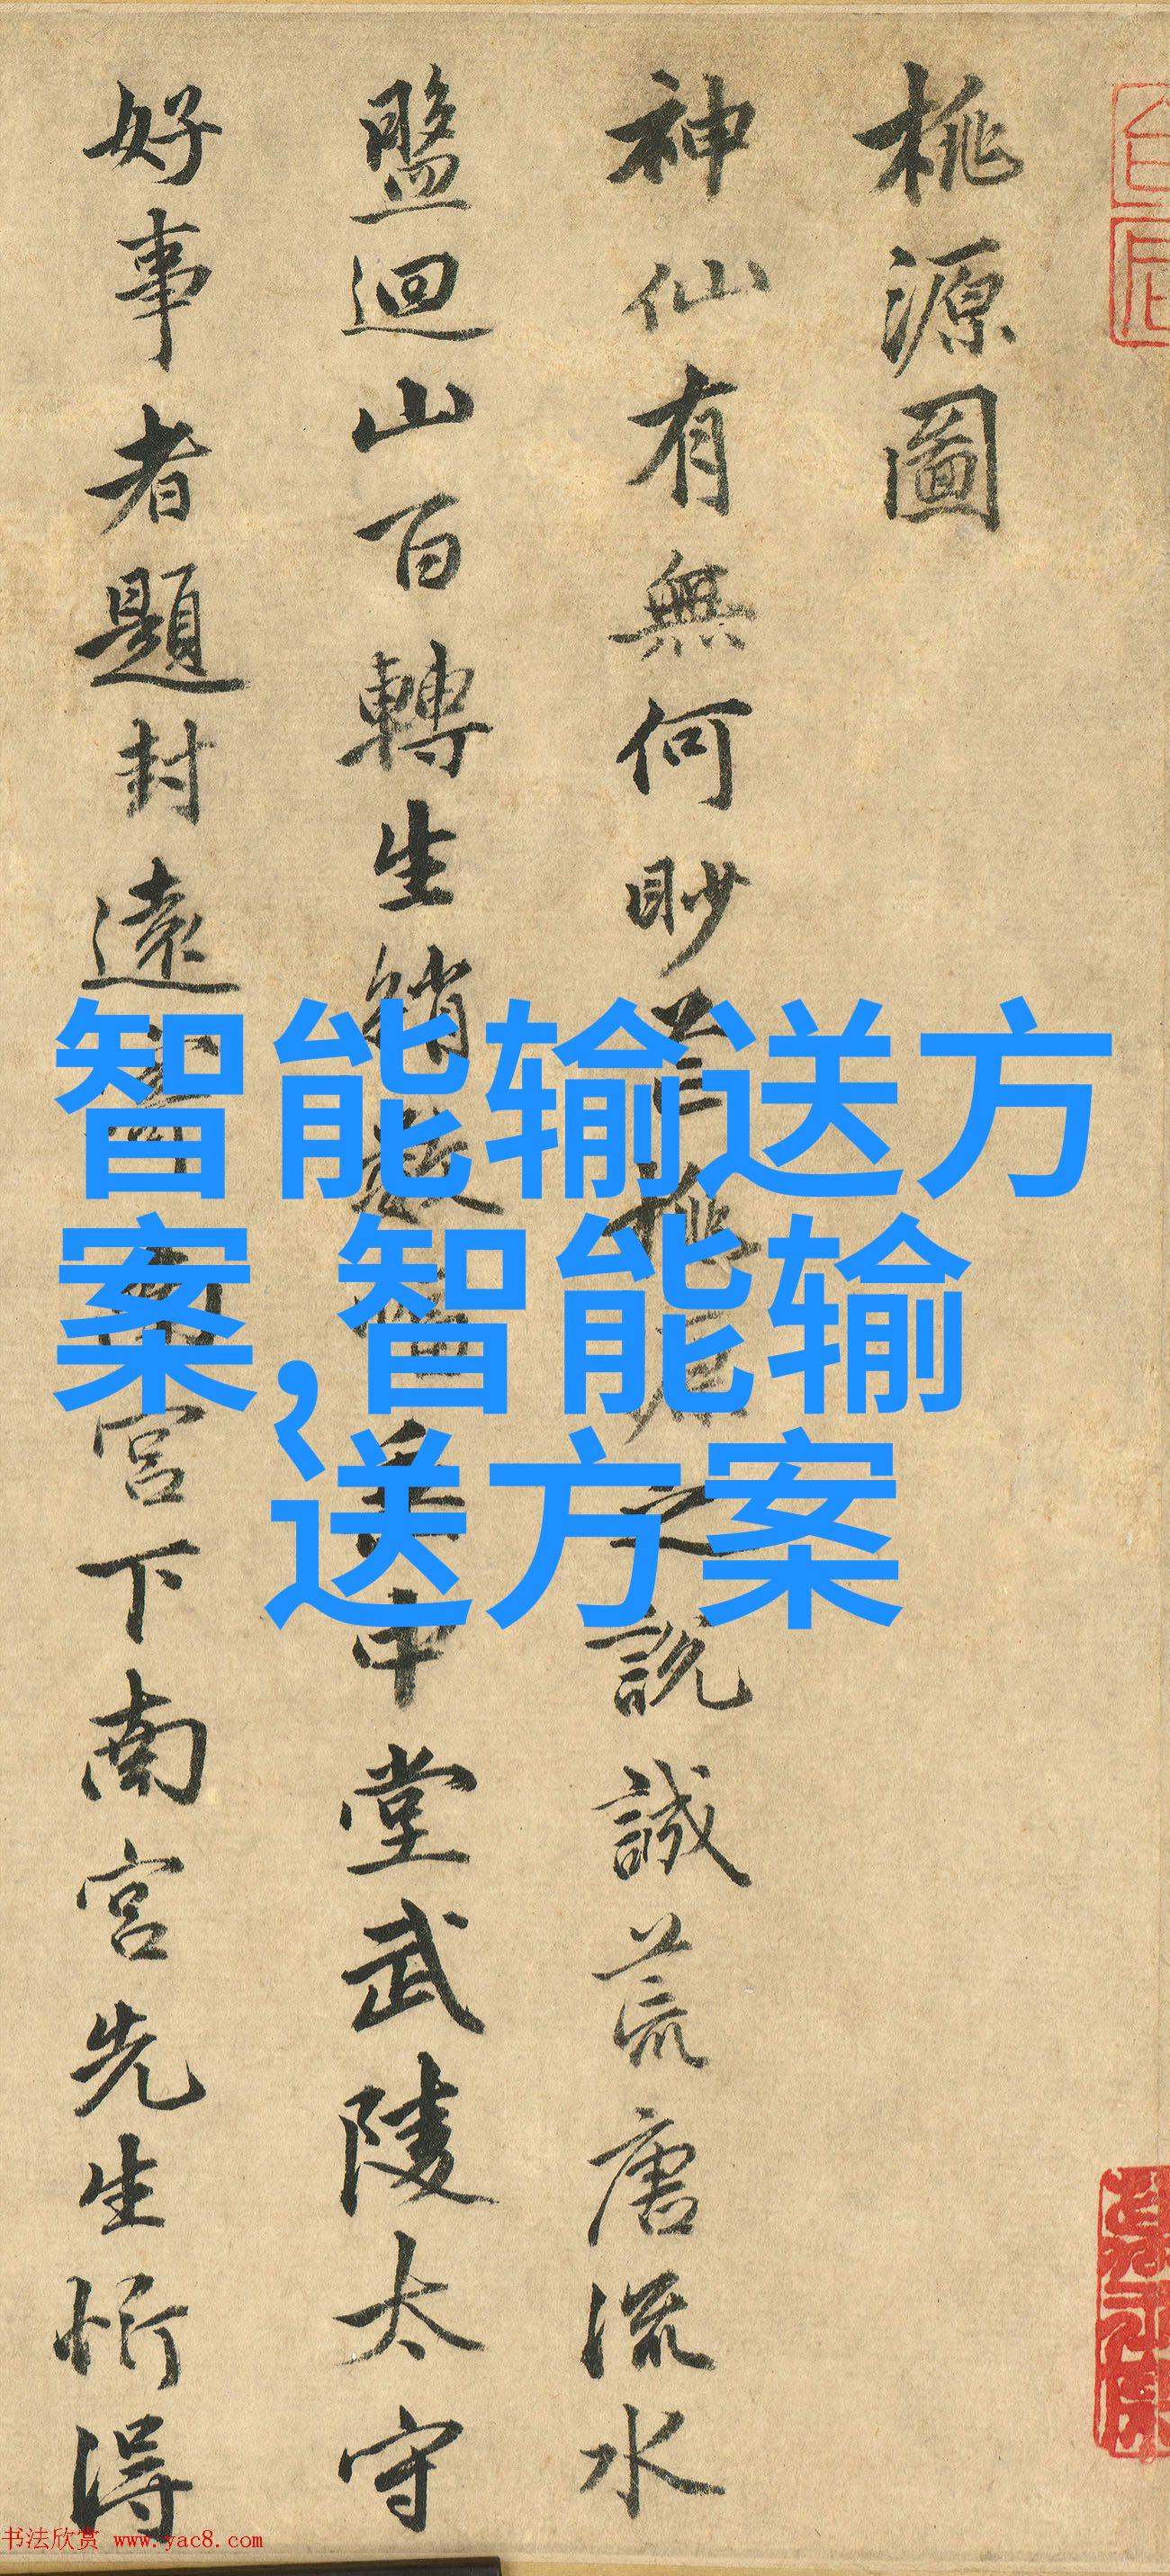 桃源圖
神仙有無何眇芒桃源之說誠荒唐流水
盤迴山百轉生綃數幅垂中堂武陵太守
好事者題封遠寄南宮下南宮先生忻得
智能输送方
案,智能输
送方案
书法欣赏 www.yac8.com